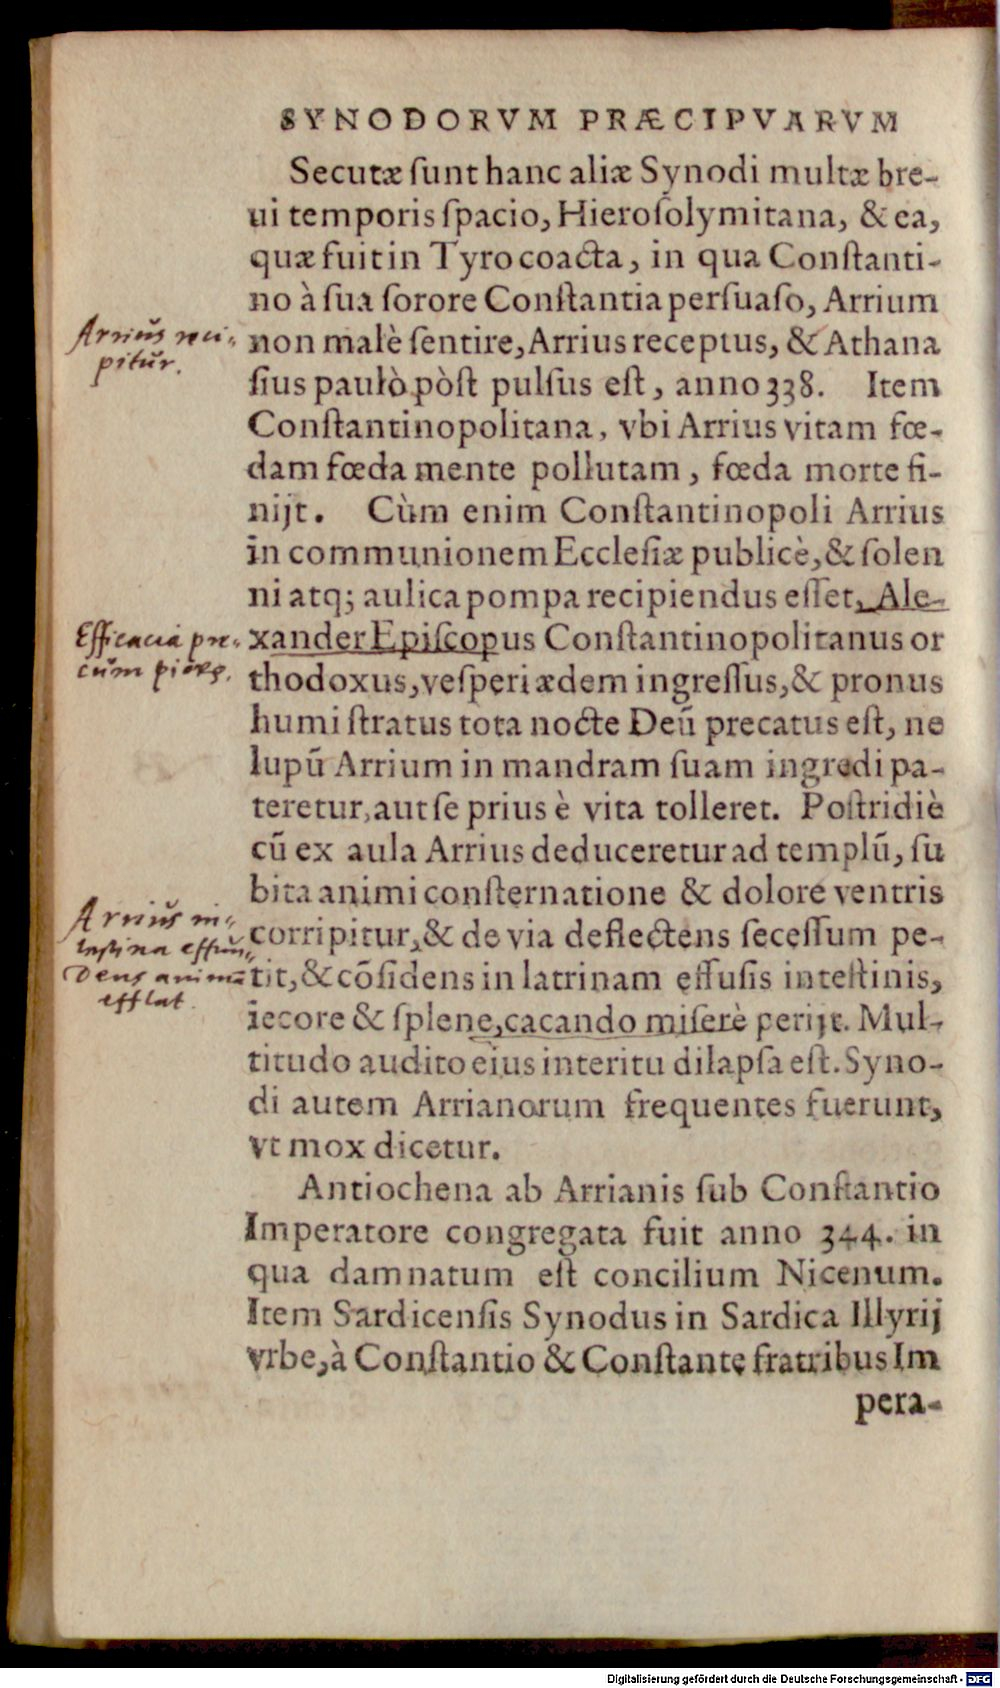 SYNODORVM PRÆCIPVARVM
Secutæ ſunt hanc aliæ Synodi multæ bre-
ui temporis ſpacio, Hieroſolymitana, & ea,
quæ fuit in Tyro coacta, in qua Conſtanti-
no à ſua ſorore Conſtantia perſuaſo, Arrium
non malè ſentire, Arrius receptus, & Athana
ſius paulò pòſt pulſus eſt, anno 338. Item
Conſtantinopolitana, vbi Arrius vitam fœ-
dam fœda mente pollutam, fœda morte fi-
nijt. Cùm enim Conſtantinopoli Arrius
in communionem Eccleſiæ publicè, & ſolen
ni atq; aulica pompa recipiendus eſſet, Ale-
xander Epiſcopus Conſtantinopolitanus or
thodoxus, veſperi ædem ingreſſus, & pronus
humi ſtratus tota nocte Deū precatus eſt, ne
lupū Arrium in mandram ſuam ingredi pa-
teretur, aut ſe prius è vita tolleret. Poſtridiè
cū ex aula Arrius deduceretur ad templū, ſu
bita animi conſternatione & dolore ventris
corripitur, & de via deflectens ſeceſſum pe-
tit, & cōſidens in latrinam effuſis inteſtinis,
iecore & ſplene, cacando miſerè perijt. Mul-
titudo audito eius interitu dilapſa eſt. Syno-
di autem Arrianorum frequentes fuerunt,
vt mox dicetur.
Antiochena ab Arrianis ſub Conſtantio
Imperatore congregata fuit anno 344. in
qua damnatum eſt concilium Nicenum.
Item Sardicenſis Synodus in Sardica Illyrij
vrbe, à Conſtantio & Conſtante fratribus Im
pera-
Arrius reci-
pitur.
Efficacia pre-
cum
Arrius in-
testina effun-
dens animā
efflat.
Digitalisierung gefördert durch die Deutsche Forschungsgemeinschaft - DFG